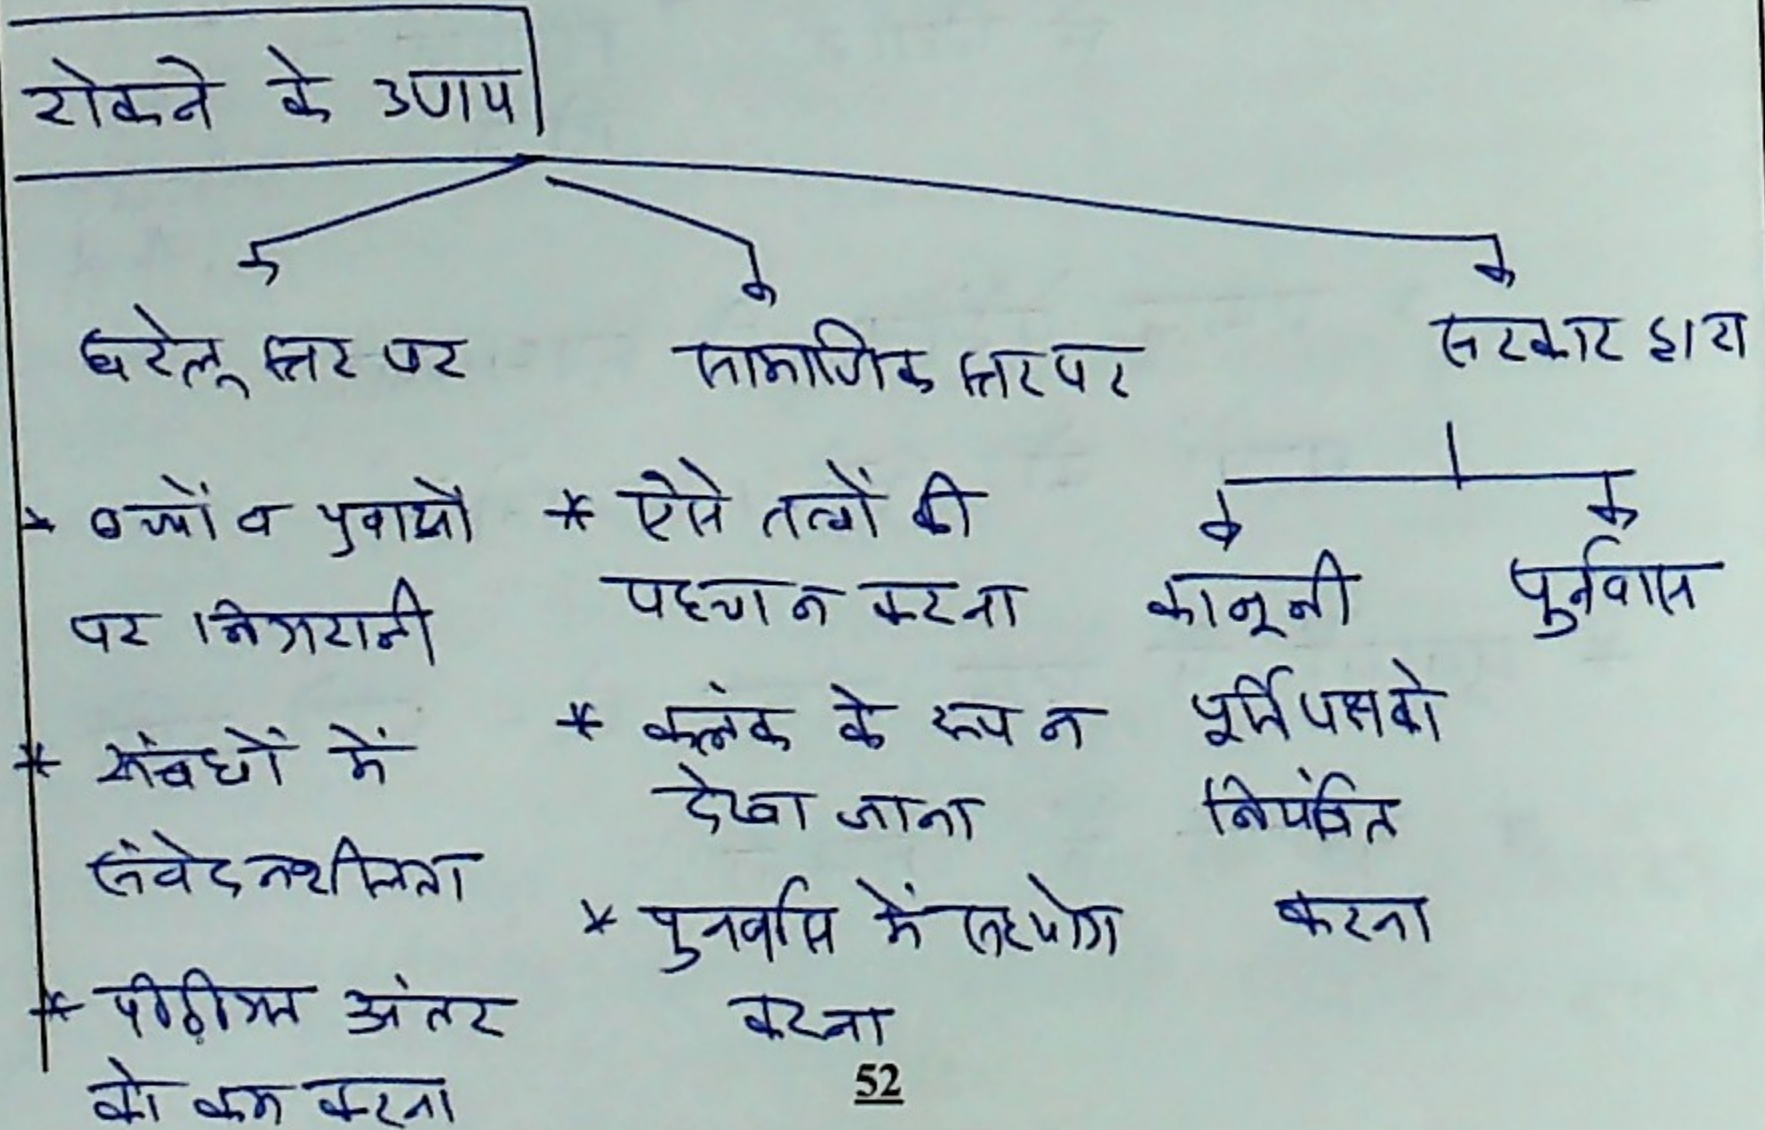 रोकने के उपाय
घरेलू स्तर पर
* बच्चों व युवाओं
पर निगरानी
* संबंधों में
संवेदनशीलता
* पीढ़ीगत अंतर
को कम करना
सामाजिक स्तर पर
* ऐसे तत्वों की
पहचान करना
* कलंक के रूप न
देखा जाना
* पुनर्वास में सहयोग
करना
सरकार द्वारा
कानूनी
पूर्ति पक्ष को
नियंत्रित
करना
पुर्नवास
52